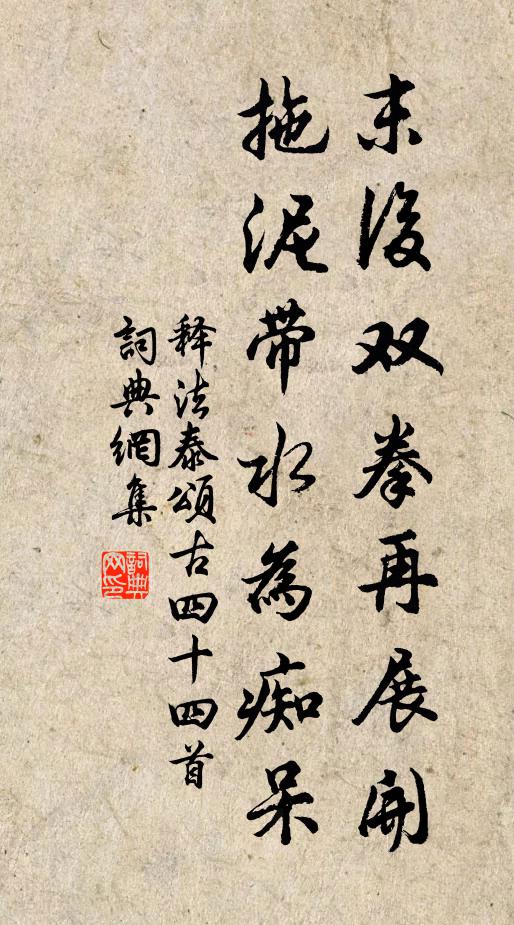 末後双拳再展開
拖泥带水為痴呆
释法泰頌古四十四首
詞典網集
詞典网印